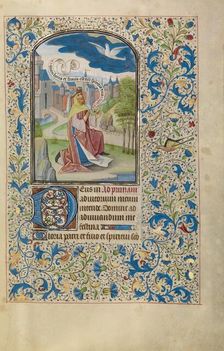 Deus in Ad primam
adiutorium meum
intende. Domine ad
adiuuandum me
festina
Gloria patri et filio et spiritui sco